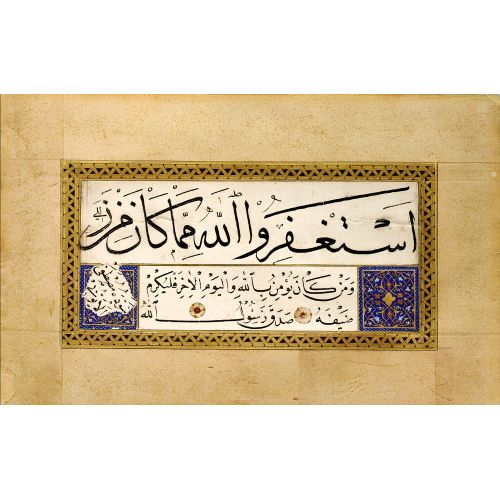 استغفروا الله مما كان من زلل
ومن كان يؤمن بالله واليوم الآخر فليكرم
ضيفه صدق رسول الله